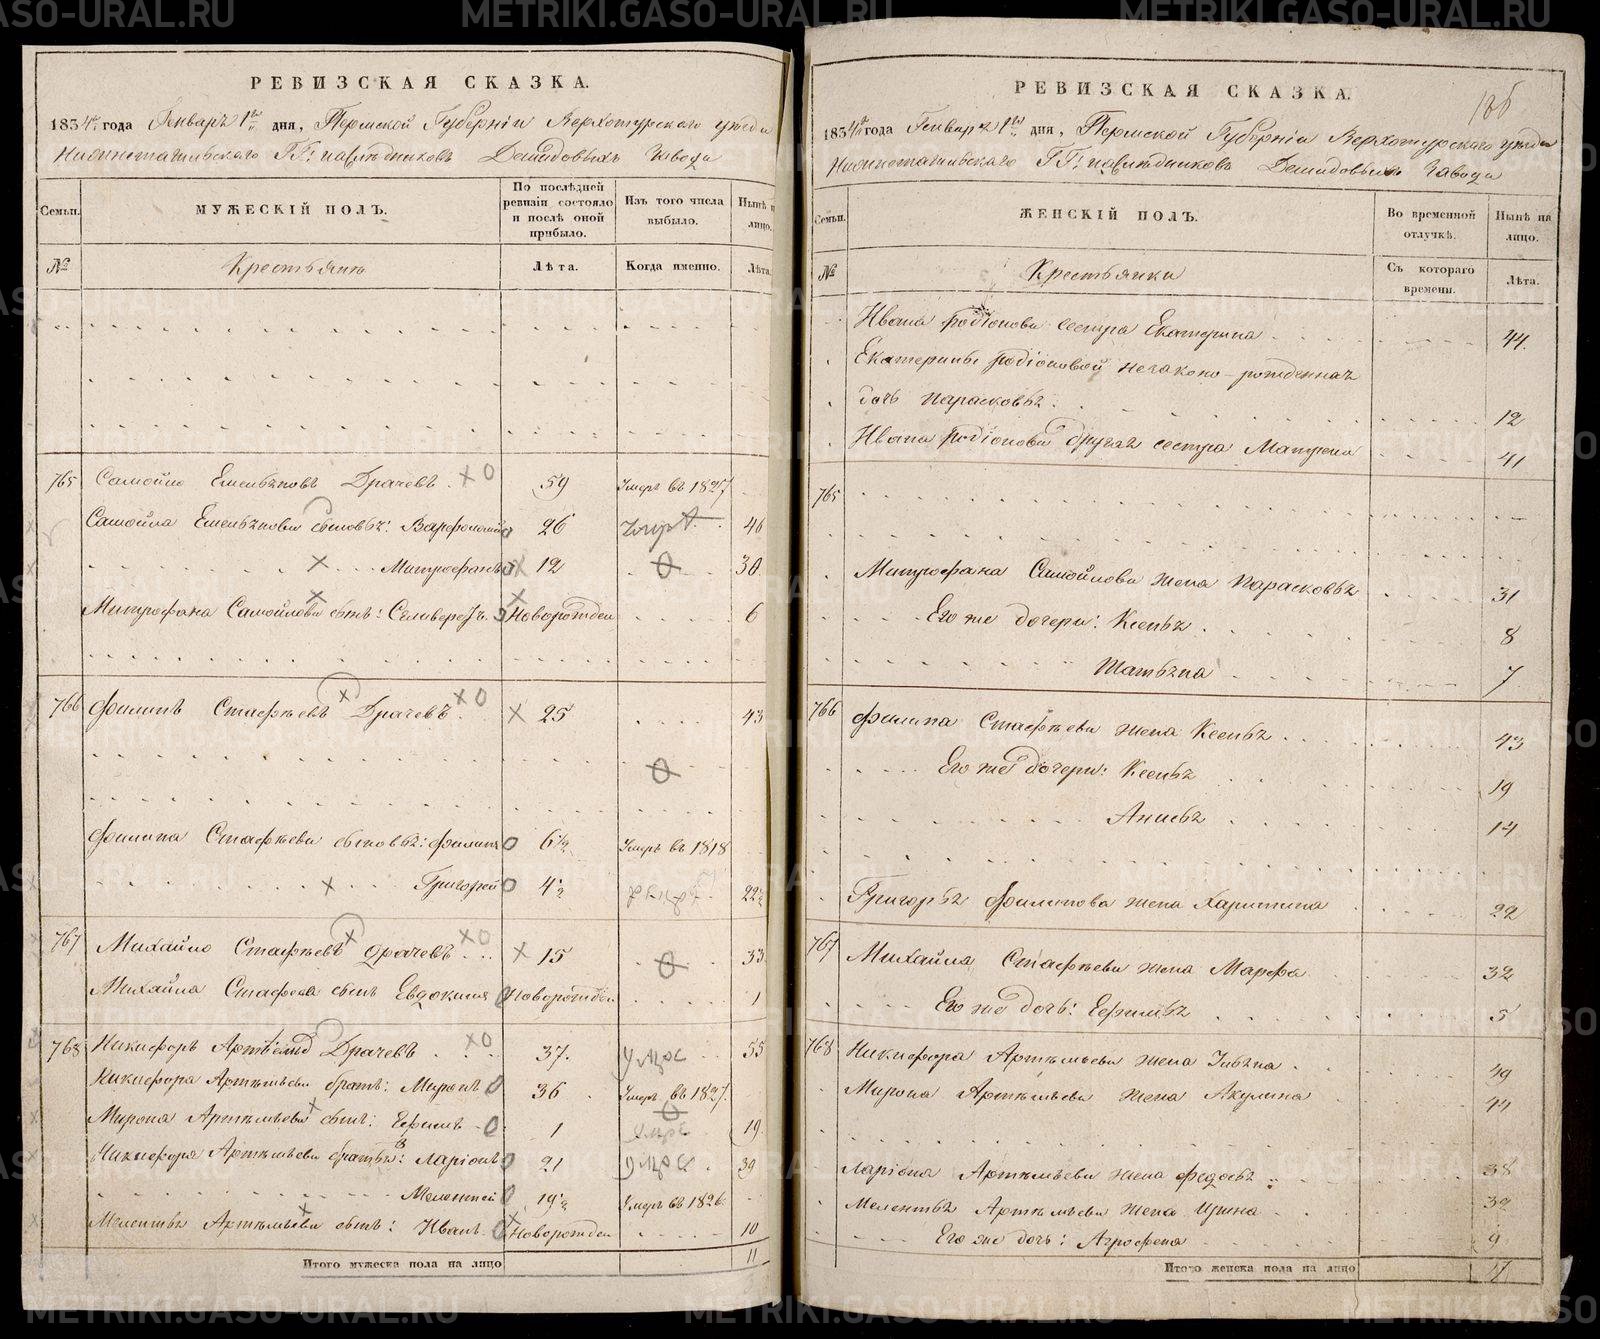 РЕВИЗСКАЯ СКАЗКА.
1834го года Генваря 1го дня, Пермской Губерніи Верхотурскаго уезда
Нижнетагильскаго ГГ: наследниковъ Демидовыхъ Завода
Семьи.
МУЖЕСКІЙ ПОЛЪ.
По послѣдней ревизіи состояло и послѣ оной прибыло.
Изъ того числа выбыло.
Нынѣ на лицо.
№
Крестьяне
Лѣта.
Когда именно.
Лѣта.
765 Самойло Емельяновъ Драчевъ. 59 Умеръ въ 1827
Самойла Емельянова сыновья: Варфоломей 26 46
Митрофанъ 12 30
Митрофана Самойлова сынъ: Селиверстъ Новорожден 6
766 Филипъ Стафѣевъ Драчевъ. 25 43
Филипа Стафѣева сыновья: Филипъ 6½ Умеръ въ 1818
Григорей 4½ 22½
767 Михайло Стафѣевъ Драчевъ 15 33
Михайла Стафеева сынъ Евдокимъ Новорожден 1
768 Никифоръ Артемьевъ Драчевъ 37. 55
Никифора Артемьева братъ: Миронъ 36 Умеръ въ 1827.
Мирона Артемьева сынъ: Ефимъ 1 19
Никифора Артемьева братья: Ларіонъ 21 39
Мелентей 19½ Умеръ въ 1826
Мелентья Артемьева сынъ: Иванъ Новорожден 10
Итого мужеска пола на лицо 11
РЕВИЗСКАЯ СКАЗКА.
1834го года Генваря 1го дня, Пермской Губерніи Верхотурскаго уезда
Нижнетагильскаго ГГ: наследниковъ Демидовыхъ Завода
Семьи.
ЖЕНСКІЙ ПОЛЪ.
Во временной отлучкѣ.
Нынѣ на лицо.
№
Крестьянки
Съ котораго времени.
Лѣта.
Ивана Родіонова сестра Екатерина 44.
Екатерины Родіоновой незаконо-рожденная
дочь Парасковья. 12
Ивана Родіонова другая сестра Матрена 41
765
Митрофана Самойлова жена Парасковья 31
Его же дочери: Ксенья. 8
Татьяна 7
766 Филипа Стафѣева жена Ксенья 43
Его же дочери: Ксенья 19
Анисья 14
Григорья Филипова жена Харитина 22
767 Михайла Стафѣева жена Марфа 32
Его же дочь: Ефимья 5
768 Никифора Артемьева жена Ульяна. 49
Мирона Артемьева жена Акулина 44
Ларіона Артемьева жена Федосья 38
Мелентья Артемьева жена Ирина 32
Его же дочь: Агрофена 9
Итого женска пола на лицо 17
METRIKI.GASO-URAL.RU